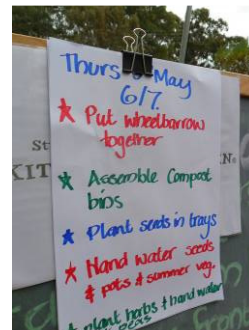 Thurs 6 May
6/7.
★ Put wheelbarrow
together
★ Assemble Compost
bins
★ Plant seeds in trays
★ Hand water seeds
& pots & summer veg.
★ plant herbs & hand water